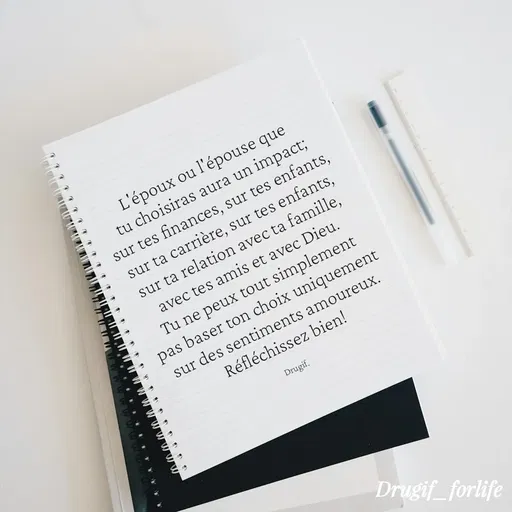 L'époux ou l'épouse que
tu choisiras aura un impact;
sur tes finances, sur tes enfants,
sur ta carrière, sur tes enfants,
sur ta relation avec ta famille,
avec tes amis et avec Dieu.
Tu ne peux tout simplement
pas baser ton choix uniquement
sur des sentiments amoureux.
Réfléchissez bien!
Drugif_
Drugif_forlife